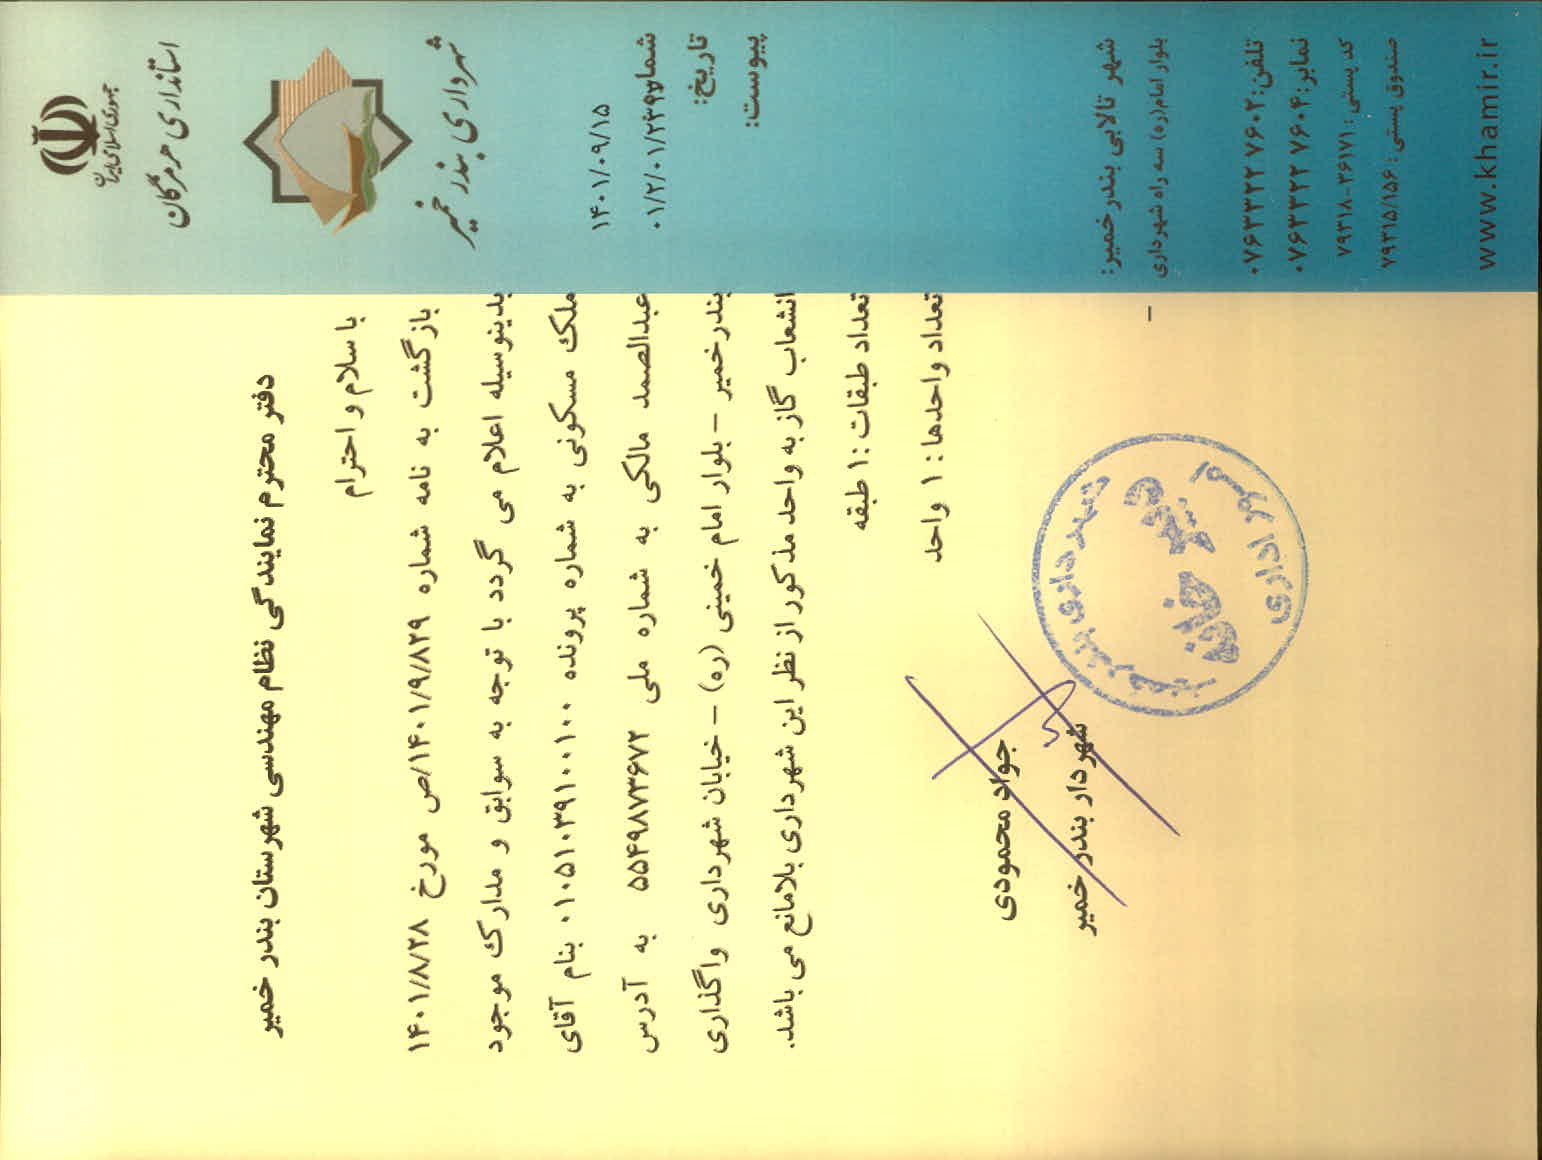 جمهوری اسلامی ایران
استانداری هرمزگان
شهرداری بندر خمیر
۱۴۰۱/۰۹/۱۵
تاریخ:
پیوست:
دفتر محترم نمایندگی نظام مهندسی شهرستان بندر خمیر
با سلام و احترام
بازگشت به نامه شماره ۱۴۰۱/۹/۸۲۹/ص مورخ ۱۴۰۱/۸/۲۸
بدینوسیله اعلام می گردد با توجه به سوابق و مدارک موجود
ملک مسکونی به شماره پرونده ۰۱۰۵۱۰۳۹۱۰۰۱۰۰ بنام آقای
عبدالصمد مالکی به شماره ملی ۵۵۴۹۸۷۳۶۷۲ به آدرس
بندرخمیر – بلوار امام خمینی (ره) – خیابان شهرداری واگذاری
انشعاب گاز به واحد مذکور از نظر این شهرداری بلامانع می باشد.
تعداد طبقات : ۱ طبقه
تعداد واحدها : ۱ واحد
جواد محمودی
شهردار بندر خمیر
شهرداری بندر خمیر
دبیرخانه
امور اداری
شهر تالابی بندر خمیر:
بلوار امام(ره) سه راه شهرداری
تلفن: ۰۷۶۳۳۲۲ ۷۶۰۲
نمابر: ۰۷۶۳۳۲۲ ۷۶۰۴
کد پستی: ۷۹۳۱۸-۲۶۱۷۱
صندوق پستی: ۷۹۳۱۵/۱۵۶
www.khamir.ir